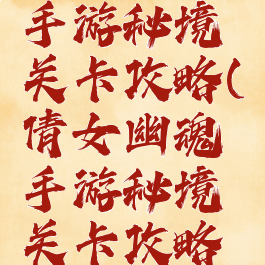 手游秘境
关卡攻略(
倩女幽魂
手游秘境
关卡攻略